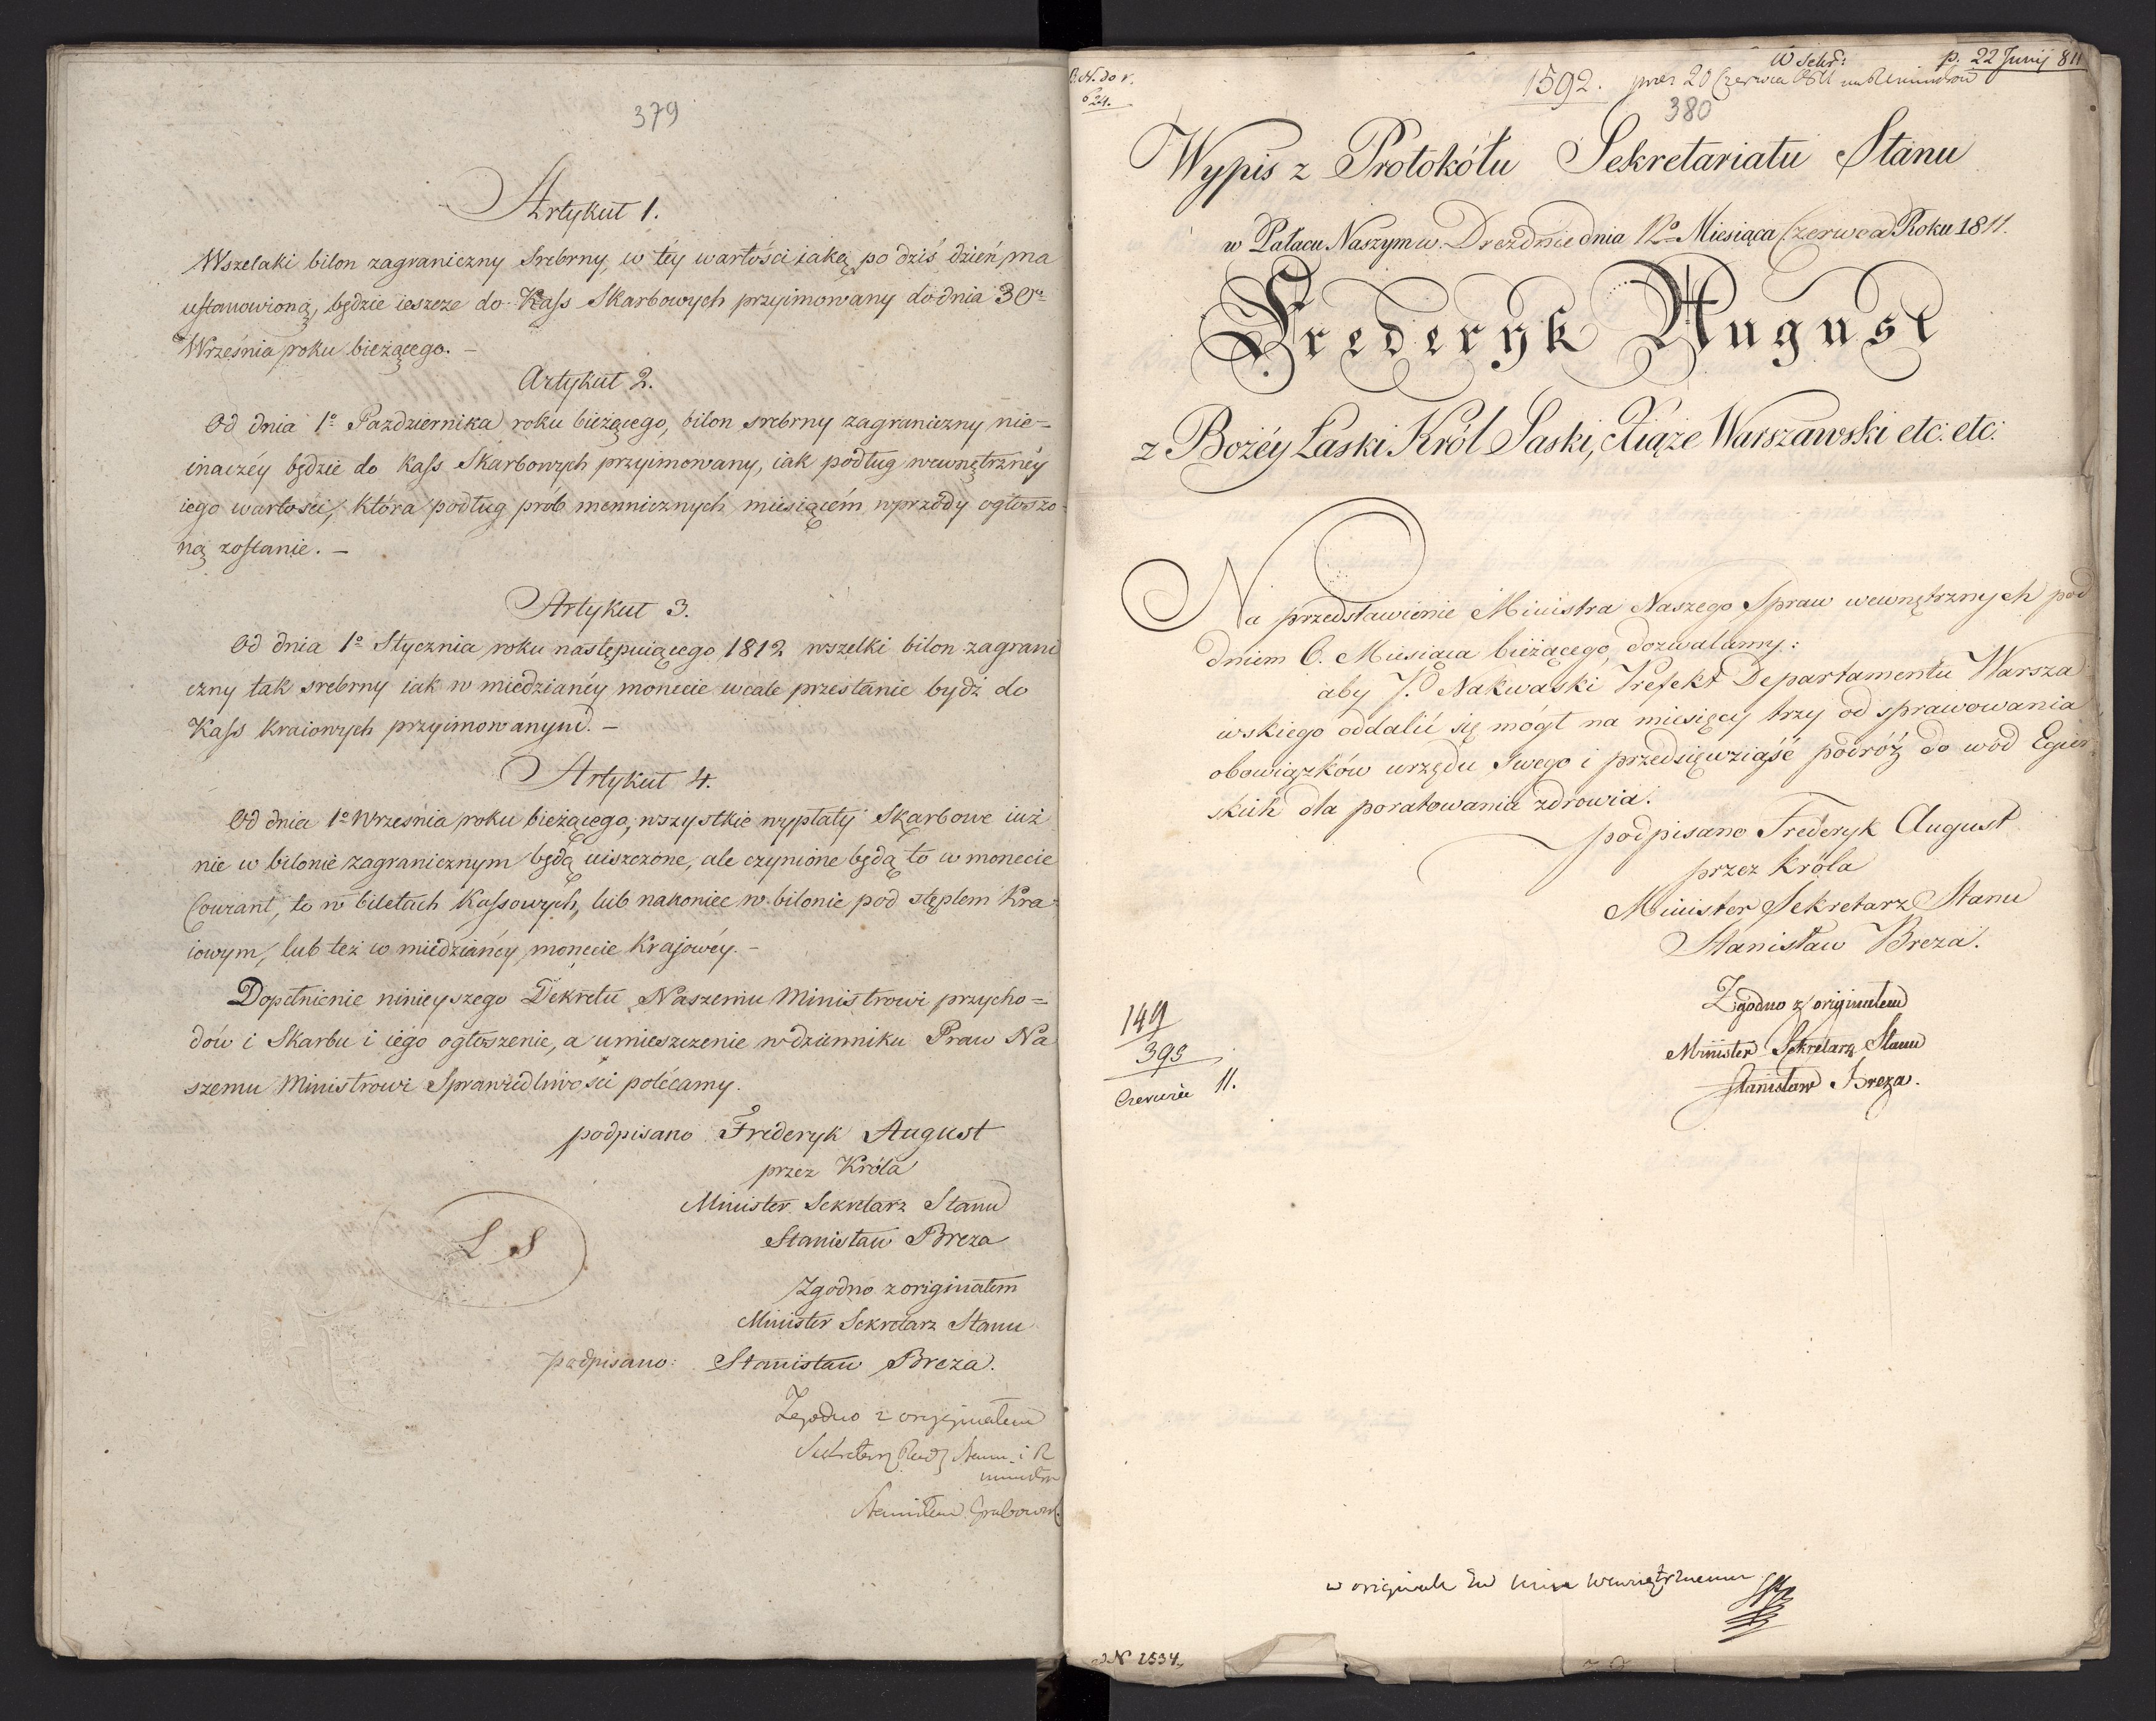 379
Artykuł 1.
Wszelaki bilon zagraniczny Srebrny, w téy wartości iaką po dziś dzień ma
ustanowioną, będzie ieszcze do Kass Skarbowych przyimowany do dnia 30º
Września roku bieżącego. –
Artykuł 2.
Od dnia 1º Pazdziernika roku bieżącego, bilon srebrny zagraniczny nie-
inaczéy będzie do kass Skarbowych przyimowany, iak podług wewnętrznéy
iego wartości, która podług prób mennicznych miesiącém wprzódy ogłoszo-
ną zostanie. –
Artykuł 3.
Od dnia 1º Stycznia roku następuiącego 1812 wszelki bilon zagrani
czny tak srebrny iak w miedzianéy monecie wcale przestanie bydź do
Kass kraiowych przyimowanym. –
Artykuł 4.
Od dnia 1º Września roku bieżącego, wszystkie wypłaty Skarbowe iuż
nie w bilonie zagranicznym będą uiszczone, ale czynione będą to w monecie
Courant, to w biletach Kassowych, lub nakoniec w bilonie pod stęplem Kra-
iowym, lub też w miedzianéy monecie Krajowéy. –
Dopełnienie ninieyszego Dekretu Naszemu Ministrowi przycho=
dów i Skarbu i iégo ogłoszenie, a umieszczenie w dzienniku Praw Na
szemu Ministrowi Sprawiedliwości polécamy.
podpisano Frideryk August
przez Króla
Minister Sekretarz Stanu
Stanisław Breza
L. S
Zgodno z originałem
Minister Sekretarz Stanu
podpisano: Stanisław Breza.
Zgodno z oryginałem
Sekretarz Rady Stanu i R
Stanisław Grabowsk
624.
W Sekr:
p. 22 Junij 811
1592. prez 20 Czerwca 1811
380
Wypis z Protokółu Sekretariatu Stanu
w Pałacu Naszym w Dreźdnie dnia 12º Miesiąca Czerwca Roku 1811.
Frederyk August
z Bożéy Łaski Król Saski, Xiąże Warszawski etc. etc.
Na przedstawienie Ministra Naszego Spraw wewnętrznych pod
dniem 6. Miesiąca bieżącego, dozwalamy:
aby J.P. Nakwaski Prefekt Departamentu Warsza
wskiego oddalić się mógł na miesięcy trzy od sprawowania
obowiązków urzędu swego i przedsięwziąść podróż do wód Egier
skich dla poratowania zdrowia.
podpisano Frederyk August
przez Króla
Minister Sekretarz Stanu
Stanisław Breza.
Zgodno z originałem
Minister Sekretarz Stanu
Stanisław Breza.
149
395
Czerwiec 11.
w originale
N 2534.